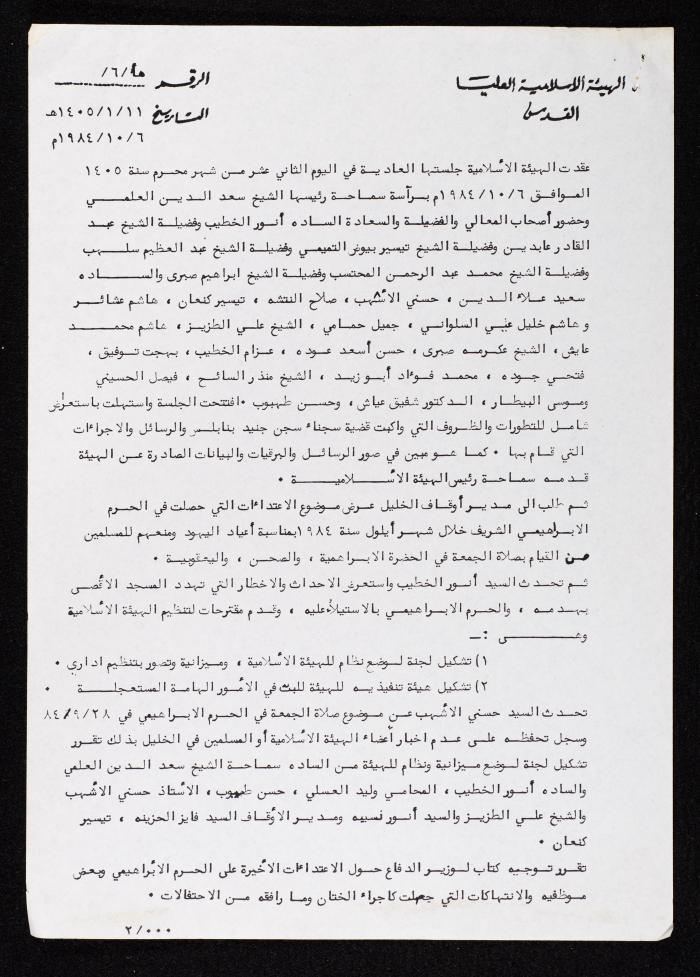 الهيئة الاسلامية العليا
القدس
الرقم هأ/٦/
التاريخ ١٤٠٥/١/١١هـ
١٩٨٤/١٠/٦م
عقدت الهيئة الأسلامية جلستها العادية في اليوم الثاني عشر من شهر محرم سنة ١٤٠٥
الموافق ١٩٨٤/١٠/٦م برآسة سماحة رئيسها الشيخ سعد الدين العلمي
وحضور أصحاب المعالي والفضيلة والسعادة الساده أنور الخطيب وفضيلة الشيخ عبد
القادر عابدين وفضيلة الشيخ تيسير بيوض التميمي وفضيلة الشيخ عبد العظيم سلهب
وفضيلة الشيخ محمد عبد الرحمن المحتسب وفضيلة الشيخ ابراهيم صبرى والساده
سعيد علاء الدين ، حسني الأشهب ، صلاح النتشه ، تيسير كنعان ، هاشم عشائر
و هاشم خليل السلواني ، جميل حمامي ، الشيخ علي الطزيز ، هاشم محمد
عايش ، الشيخ عكرمه صبرى ، حسن أسعد عوده ، عزام الخطيب ، بهجت توفيق ،
فتحي جوده ، محمد فوءاد أبو زيد ، الشيخ منذر السائح ، فيصل الحسيني
وموسى البيطار ، الدكتور شفيق عياش ، وحسن طهبوب ٠ افتتحت الجلسة واستهلت باستعراض
شامل للتطورات والظروف التي واكبت قضية سجناء سجن جنيد بنابلس والرسائل والاجراءات
التي قام بها ٠ كما هو مبين في صور الرسائل والبرقيات والبيانات الصادرة عن الهيئة
قدمه سماحة رئيس الهيئة الأسلامية ٠
ثم طلب الى مدير أوقاف الخليل عرض موضوع الاعتداءات التي حصلت في الحرم
الابراهيمي الشريف خلال شهر أيلول سنة ١٩٨٤ بمناسبة أعياد اليهود ومنعهم للمسلمين
من القيام بصلاة الجمعة في الحضرة الابراهمية ، والصحن ، واليعقوبية ٠
ثم تحدث السيد أنور الخطيب واستعرض الاحداث والاخطار التي تهدد المسجد الأقصى
بهدمه ، والحرم الابراهيمي بالاستيلاء عليه ، وقدم مقترحات لتنظيم الهيئة الأسلامية
وهى :ـ
١) تشكيل لجنة لوضع نظام للهيئة الأسلامية ، وميزانية وتصور بتنظيم اداري ٠
٢) تشكيل هيئة تنفيذيه للهيئة للبت في الأمور الهامة المستعجلة ٠
تحدث السيد حسني الأشهب عن موضوع صلاة الجمعة في الحرم الابراهيمي في ٨٤/٩/٢٨
وسجل تحفظه على عدم اخبار أعضاء الهيئة الأسلامية أو المسلمين في الخليل بذلك تقرر
تشكيل لجنة لوضع ميزانية ونظام للهيئة من الساده سماحة الشيخ سعد الدين العلمي
والساده أنور الخطيب ، المحامي وليد العسلي ، حسن طهبوب ، الأستاذ حسني الأشهب
والشيخ علي الطزيز والسيد أنور نسيبه ومدير الأوقاف السيد فايز الحزينه ، تيسير
كنعان ٠
تقرر توجيه كتاب لوزير الدفاع حول الاعتداءات الأخيرة على الحرم الأبراهيمي وبعض
موظفيه والانتهاكات التي جعلت كاجراء الختان وما رافقه من الاحتفالات ٠
٢/٠٠٠